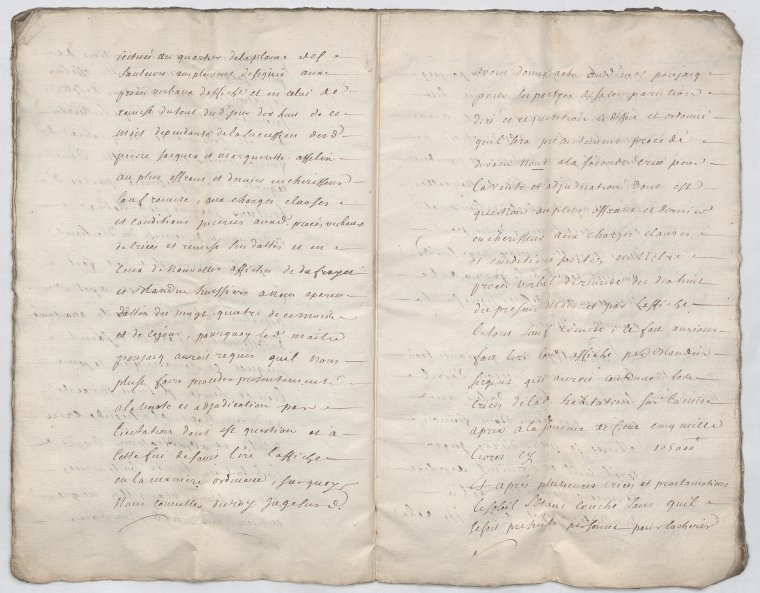 scituée au quartier de la plaine des
Sauteurs amplement designée aux
procès verbaux d'affiche et en celui de
remise du tout du d. jour dix huit de ce
mois dependante de la succession des d.
pierre Jacques et marguerite asselin
au plus offrant et dernier encherisseur
Sauf remise, aux charges clauses
et conditions inserées aux d. procès verbaux
de criées et remise sus dattés et en
Ceux de Nouvelles affiches de
et Blandin huissiers a Nous aparus
dattés du vingt quatre de ce mois
et de ce jour, pourquoy le d. maitre
poujacq auroit requis quil Nous
plust faire proceder presentement
a la vente et adjudication par
licitation dont est question et a
cette fin de faire lire l'affiche
en la maniere ordinaire, surquoy
Nous Conseiller du roy Juge sus d.
avons donné acte aud. me. poujacq
pour les parties de sa comparution
dire et requisition cy dessus et ordonné
quil sera presentement procedé
devant Nous a la seconde criée pour
la vente et adjudication dont est
question au plus offrant et dernier
encherisseur aux charges clauses
et conditions portées en Notre
procès verbal de remise du dix huit
du present mois et par l'affiche
le tout sauf remise ; ce fait aurions
fait lire lad. affiche par Blandin
Sergent qui auroit continué les
criées de lad. habitation sur la mise
a prix a la somme de cent cinq mille
livres cy 105000
Et après plusieurs criées et proclamations
le soleil s'étant couché sans quil
se soit presenté personne pour encherir